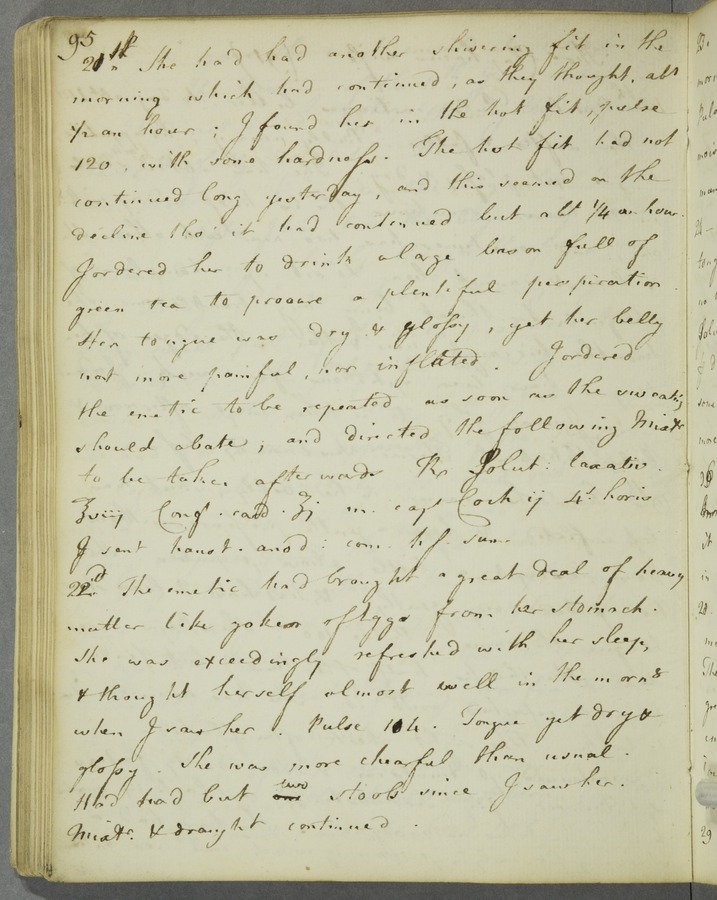 95
21st She had had another shivering fit in the
morning which had continued, as they thought, abt
1/2 an hour; I found her in the hot fit, pulse
120, with some hardness. The hot fit had not
continued long yesterday, and this seemed on the
decline tho' it had continued but abt 1/4 an hour.
I ordered her to drink a large bason full of
green tea to procure a plentiful perspiration
Her tongue was dry & glossy, yet her belly
not more painful, nor inflated. I ordered
the emetic to be repeated as soon as the sweating
should abate; and directed the following Mixtr
to be taken afterwards Rx Solut: laxativ.
℥viij Conf. card. ʒj m. cap Coch ij 4s horis
I sent haust. anod: com. h.s. sum.
22d. The emetic had brought a great deal of heavy
matter like yokes of Eggs from her stomach.
She was exceedingly refreshed with her sleep,
& thought herself almost well in the morng
when I saw her. Pulse 104. Tongue yet dry &
glossy. She was more chearful than usual.
Had had but two stools since I saw her.
Mixtr. & draught continued.